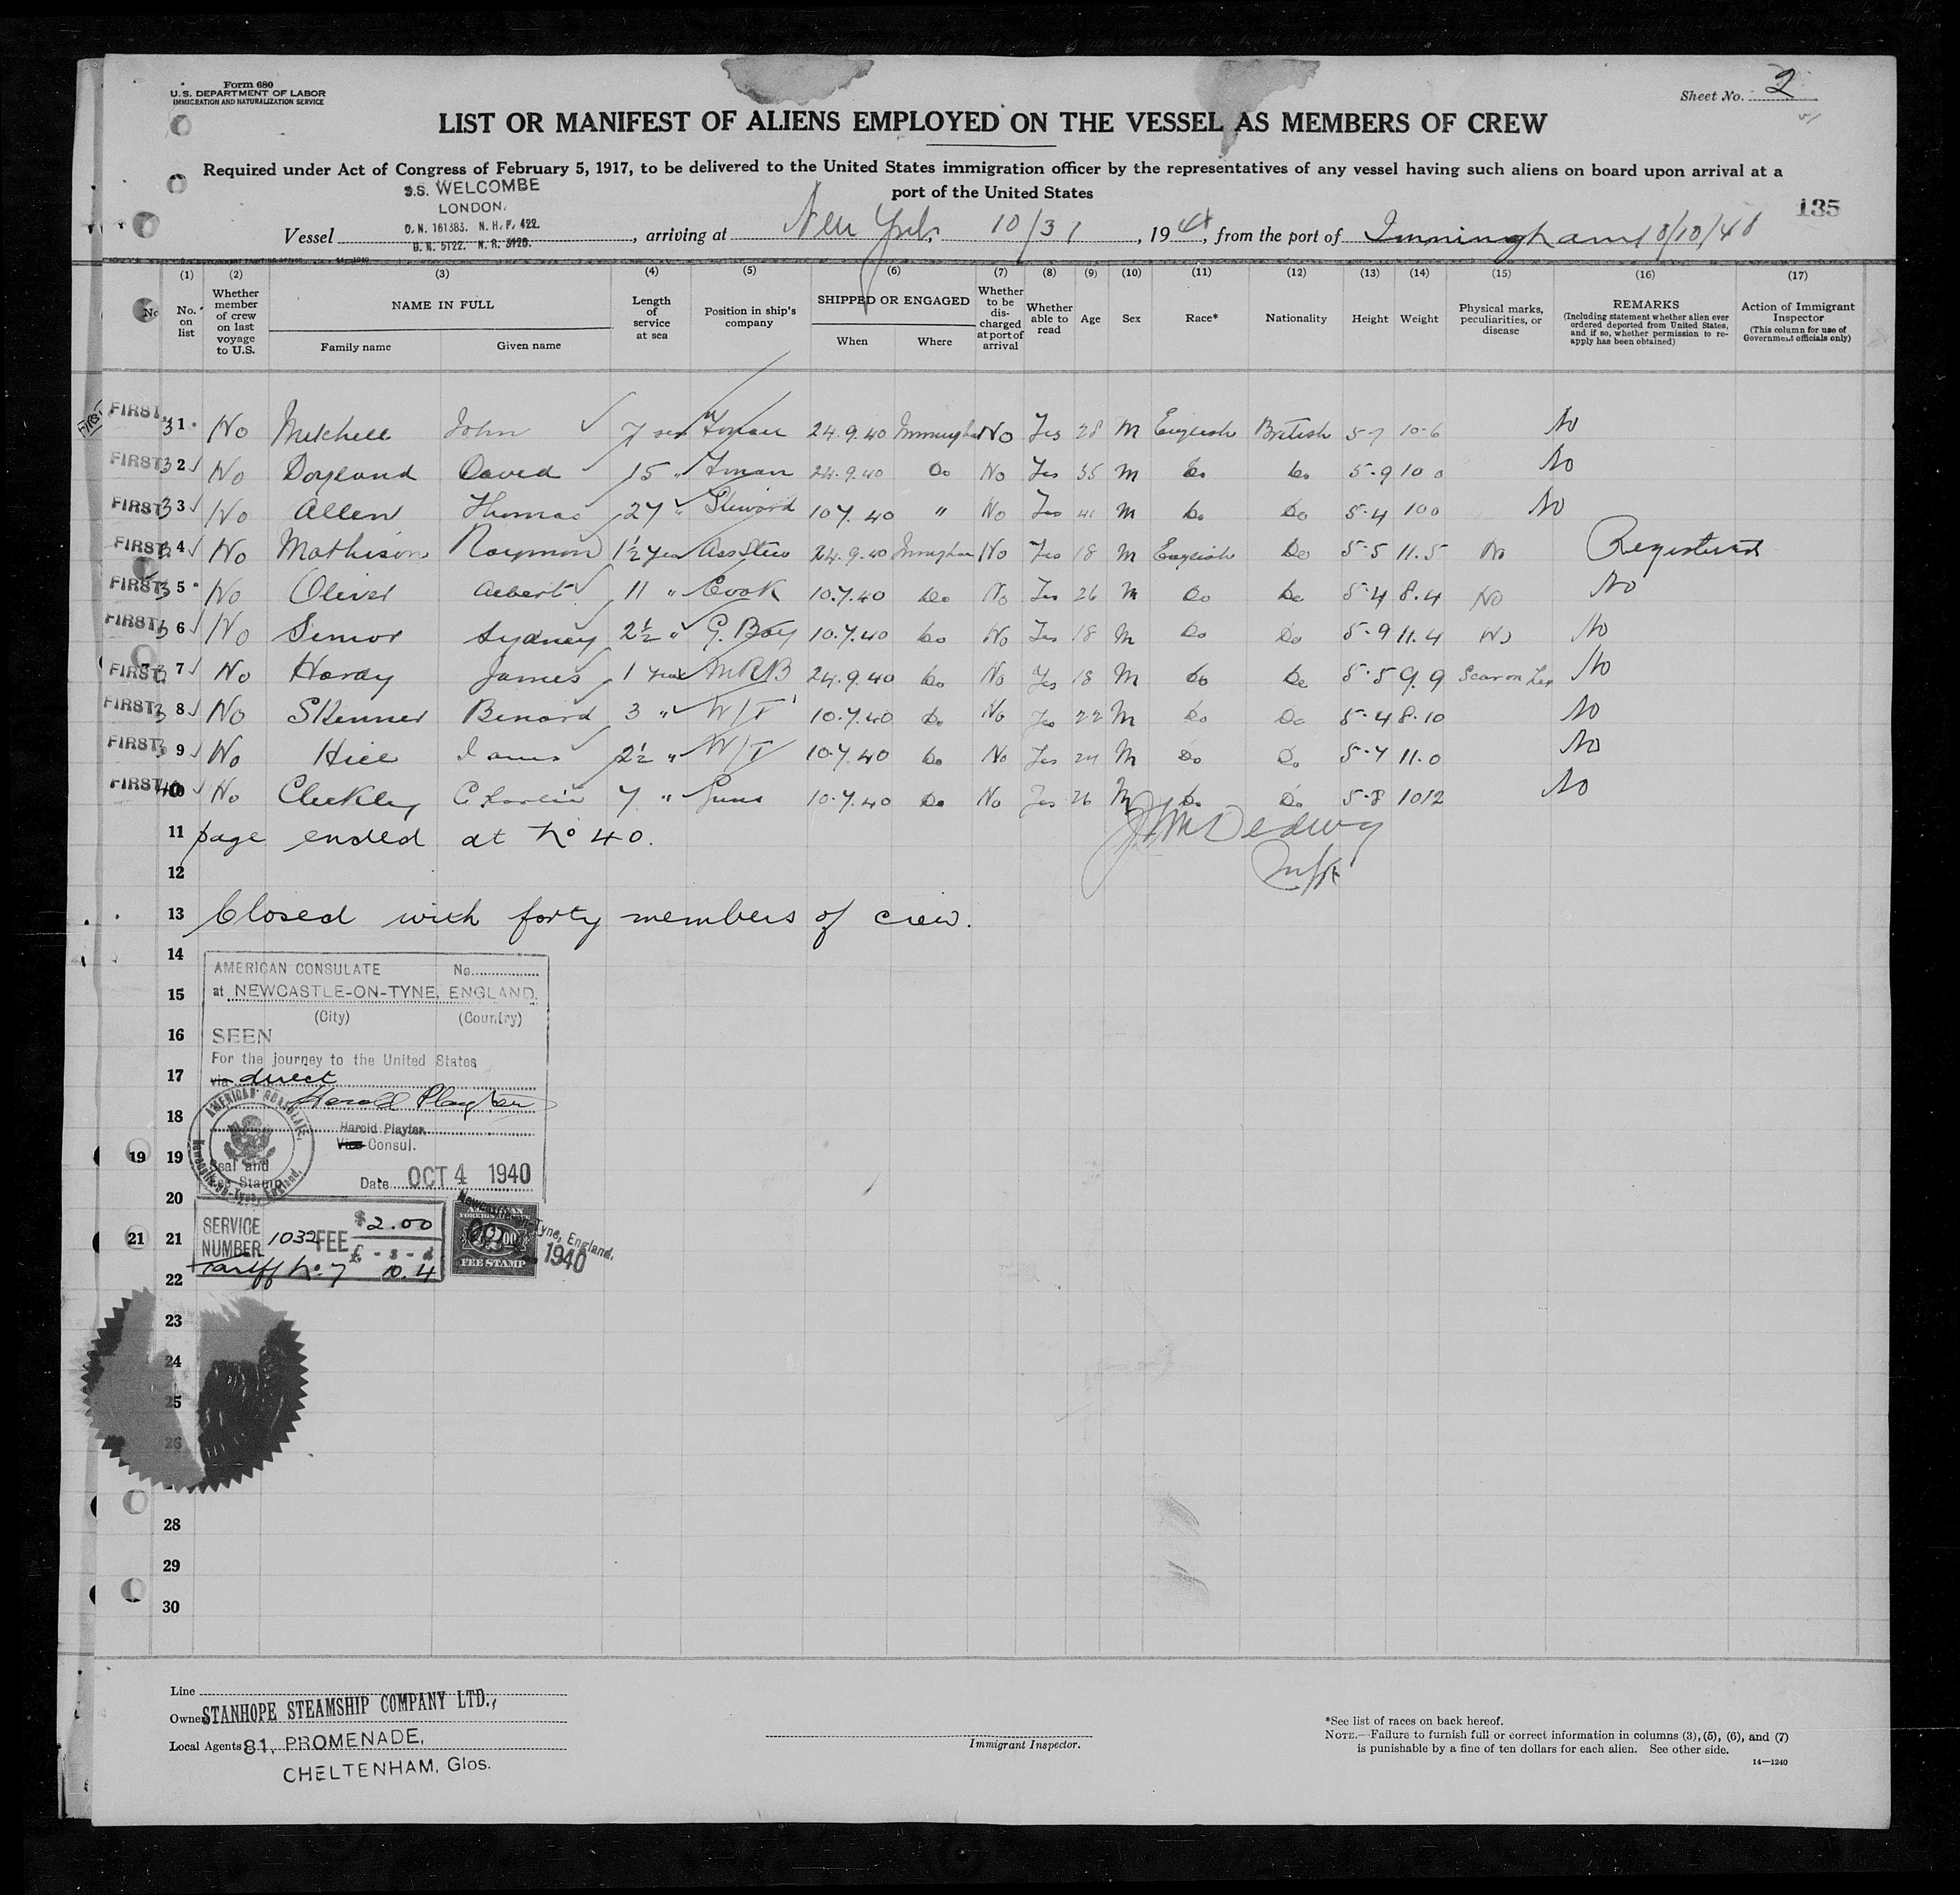 Form 680
U.S. DEPARTMENT OF LABOR
IMMIGRATION AND NATURALIZATION SERVICE
Sheet No. 2
LIST OR MANIFEST OF ALIENS EMPLOYED ON THE VESSEL AS MEMBERS OF CREW
Required under Act of Congress of February 5, 1917, to be delivered to the United States immigration officer by the representatives of any vessel having such aliens on board upon arrival at a
port of the United States
S.S. WELCOMBE
LONDON.
O.N. 161383. N.H.P. 422.
G.N. 5122. N.R. 3120.
135
Vessel , arriving at New York, 10/31, 19 40, from the port of Immingham 10/10/40
(1) (2) (3) (4) (5) (6) (7) (8) (9) (10) (11) (12) (13) (14) (15) (16) (17)
No. on list
Whether member of crew on last voyage to U.S.
NAME IN FULL
Family name Given name
Length of service at sea
Position in ship's company
SHIPPED OR ENGAGED
When Where
Whether to be discharged at port of arrival
Whether able to read
Age
Sex
Race*
Nationality
Height
Weight
Physical marks, peculiarities, or disease
REMARKS
(Including statement whether alien ever ordered deported from United States, and if so, whether permission to re-apply has been obtained)
Action of Immigrant Inspector
(This column for use of Government officials only)
FIRST 31 No Mitchell John 7 Fman 24.9.40 Immingham No Yes 28 M English British 5-7 10-6 No
FIRST 32 No Doyland David 15 " Fman 24.9.40 Do No Yes 35 M Do Do 5-9 10 0 No
FIRST 33 No Allen Thomas 27 " Steward 10.7.40 " No Yes 41 M Do Do 5-4 10 0 No
FIRST 34 No Mathison Raymon 1½ year Ass Stew 24.9.40 Immingham No Yes 18 M English Do 5-5 11.5 No Registered
FIRST 35 No Oliver Albert 11 " Cook 10.7.40 Do No Yes 26 M Do Do 5-4 8.4 No No
FIRST 36 No Senior Sydney 2½ " G. Boy 10.7.40 Do No Yes 18 M Do Do 5-9 11.4 No No
FIRST 37 No Hardy James 1 year MRB 24.9.40 Do No Yes 18 M Do Do 5-5 9.9 Scar on Leg No
FIRST 38 No Skenner Benard 3 " W/T 10.7.40 Do No Yes 22 M Do Do 5-4 8.10 No
FIRST 39 No Hill James 2½ " W/T 10.7.40 Do No Yes M Do Do 5-7 11.0 No
FIRST 40 No Checkley Charlie 7 " Guns 10.7.40 Do No Yes 26 M Do Do 5-8 10 12 No
11 page ended at No 40.
12
13 Closed with forty members of crew.
14
AMERICAN CONSULATE No.
15 at NEWCASTLE-ON-TYNE, ENGLAND.
(City) (Country)
16 SEEN
For the journey to the United States
17 via direct
Harold Playter
18
Harold Playter
Vice Consul.
AMERICAN CONSULATE, Newcastle-on-Tyne, England.
19 19 Seal and
Fee Stamp
Date OCT 4 1940
20
21 21
SERVICE NUMBER 1032 FEE $2.00
£ - s - d
Tariff No 7 10.4
22
FEE STAMP
Newcastle-on-Tyne, England.
1940
23
24
25
26
28
29
30
Line
Owners STANHOPE STEAMSHIP COMPANY LTD.,
Local Agents 81, PROMENADE,
CHELTENHAM, Glos.
Immigrant Inspector.
*See list of races on back hereof.
NOTE.—Failure to furnish full or correct information in columns (3), (5), (6), and (7)
is punishable by a fine of ten dollars for each alien. See other side.
14—1240